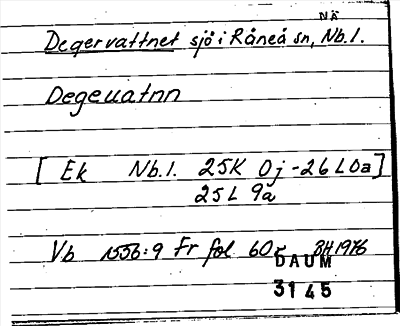 NÄ
Degervattnet sjö i Råneå sn, Nb.l.
Degeuatnn
[Ek Nb.l. 25K 0j-26L0a]
25L 9a
Vb 1556:9 Fr fol 60r BH1976
DAUM
3145